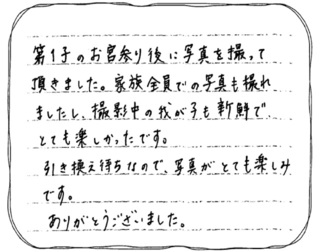 第1子のお宮参り後に写真を撮って
頂きました。家族全員での写真も撮れ
ましたし、撮影中の我が子も新鮮で、
とても楽しかったです。
引き換え待ちなので、写真がとても楽しみ
です。
ありがとうございました。